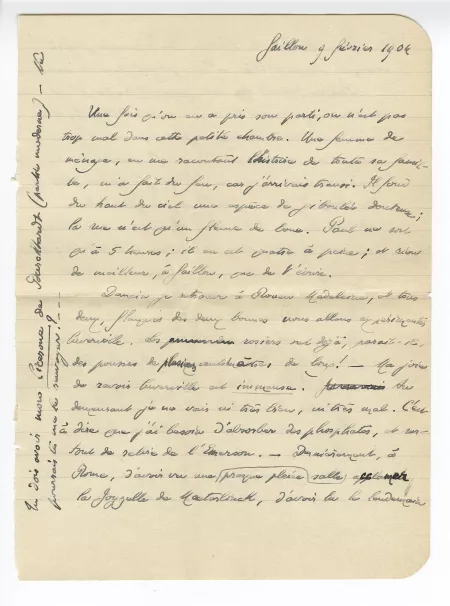 Gaillon 9 février 1904
Une fois qu'on en a pris son parti, on n'est pas
trop mal dans cette petite chambre. Une femme de
ménage, en me racontant l'histoire de toute sa famil-
le, m'a fait du feu, car j'arrivais transi. Il fond
du haut du ciel une espèce de giboulée douteuse;
la rue n'est qu'un fleuve de boue. Paul ne sort
qu'à 5 heures; il en est quatre à peine; et rien
de meilleur, à Gaillon, que de t'écrire.
Demain je retrouve à Rouen Madeleine, et tous
deux, flanqués des deux bonnes nous allons
Cuverville. Les rosiers ont déjà, paraît-il,
des pousses de centimètres de long! — Ma joie
de revoir Cuverville est immense. Au
demeurant je ne vais ni très bien, ni très mal. C'est
à dire que j'ai besoin d'absorber des phosphates, et sur-
tout de relire de l'Emerson. — Dernièrement, à
Rome, d'avoir vu une presque pleine salle
la Joyzelle de Maeterlinck, d'avoir lu le lendemain
Tu dois avoir mon Cicerone de Burckhardt (partie moderne) —
pourrais-tu me le renvoyer? --